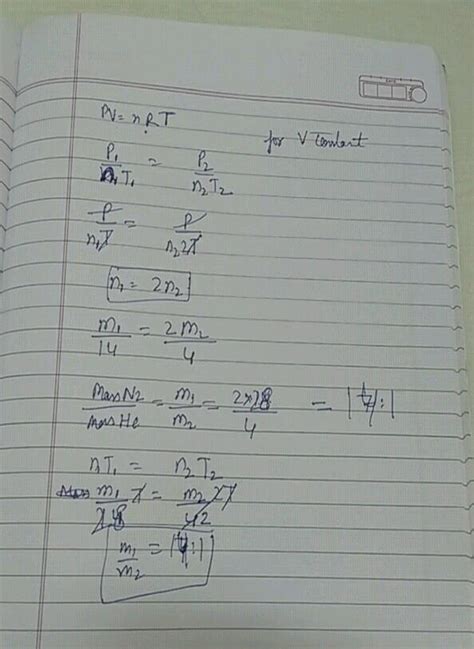 PV = nRT
for V constant
P₁/n₁T₁ = P₂/n₂T₂
P/n₁T = P/n₂2T
n₁ = 2n₂
m₁/14 = 2m₂/4
Mass N2/mass He = m₁/m₂ = 2×28/4 = 14:1
nT₁ = n₂T₂
m₁T/28 = m₂2T/42
m₁/m₂ = 14:1